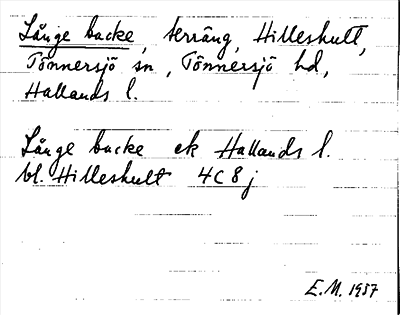 Långe backe, terräng, Hilleshult,
Tönnersjö sn, Tönnersjö hd,
Hallands l.
Långe backe ek Hallands l.
bl. Hilleshult 4C8j
E.M. 1957